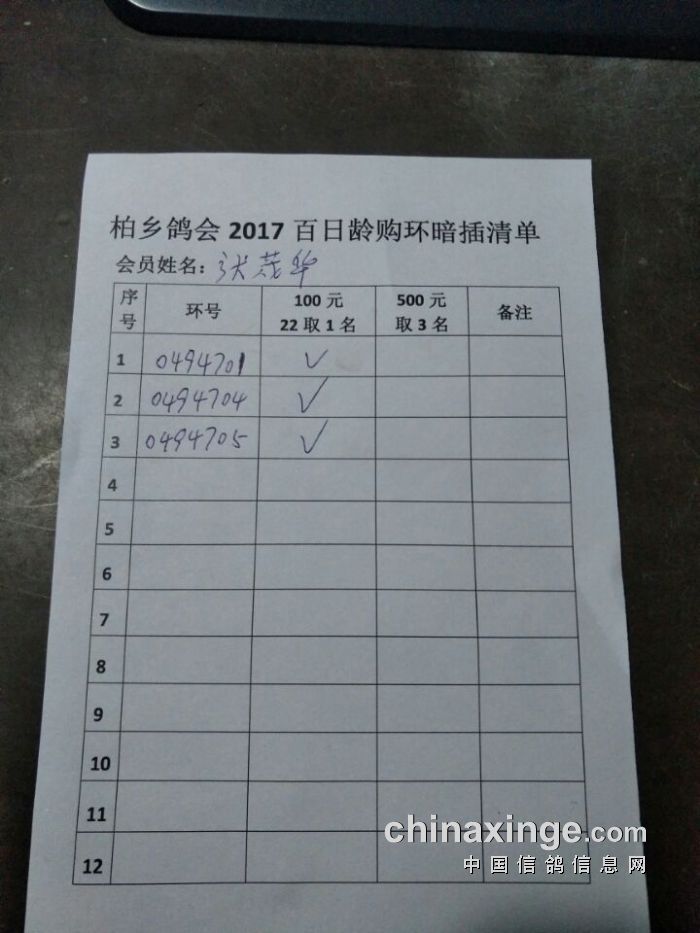 柏乡鸽会2017百日龄购环暗插清单
会员姓名：张茂华
序号 环号 100元 22取1名 500元 取3名 备注
1 0494701 ✓
2 0494704 ✓
3 0494705 ✓
4
5
6
7
8
9
10
11
12
chinaxinge.com
中国信鸽信息网